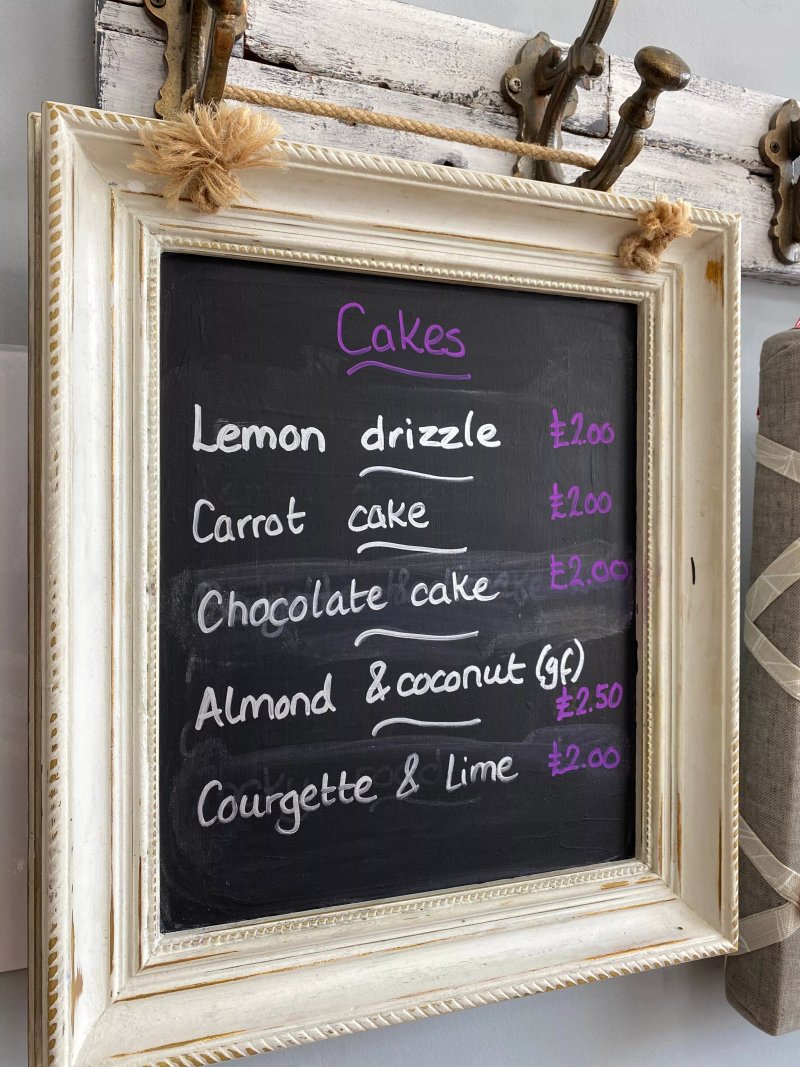 Cakes
Lemon drizzle £2.00
Carrot cake £2.00
Chocolate cake £2.00
Almond & coconut (gf)
£2.50
Courgette & Lime £2.00